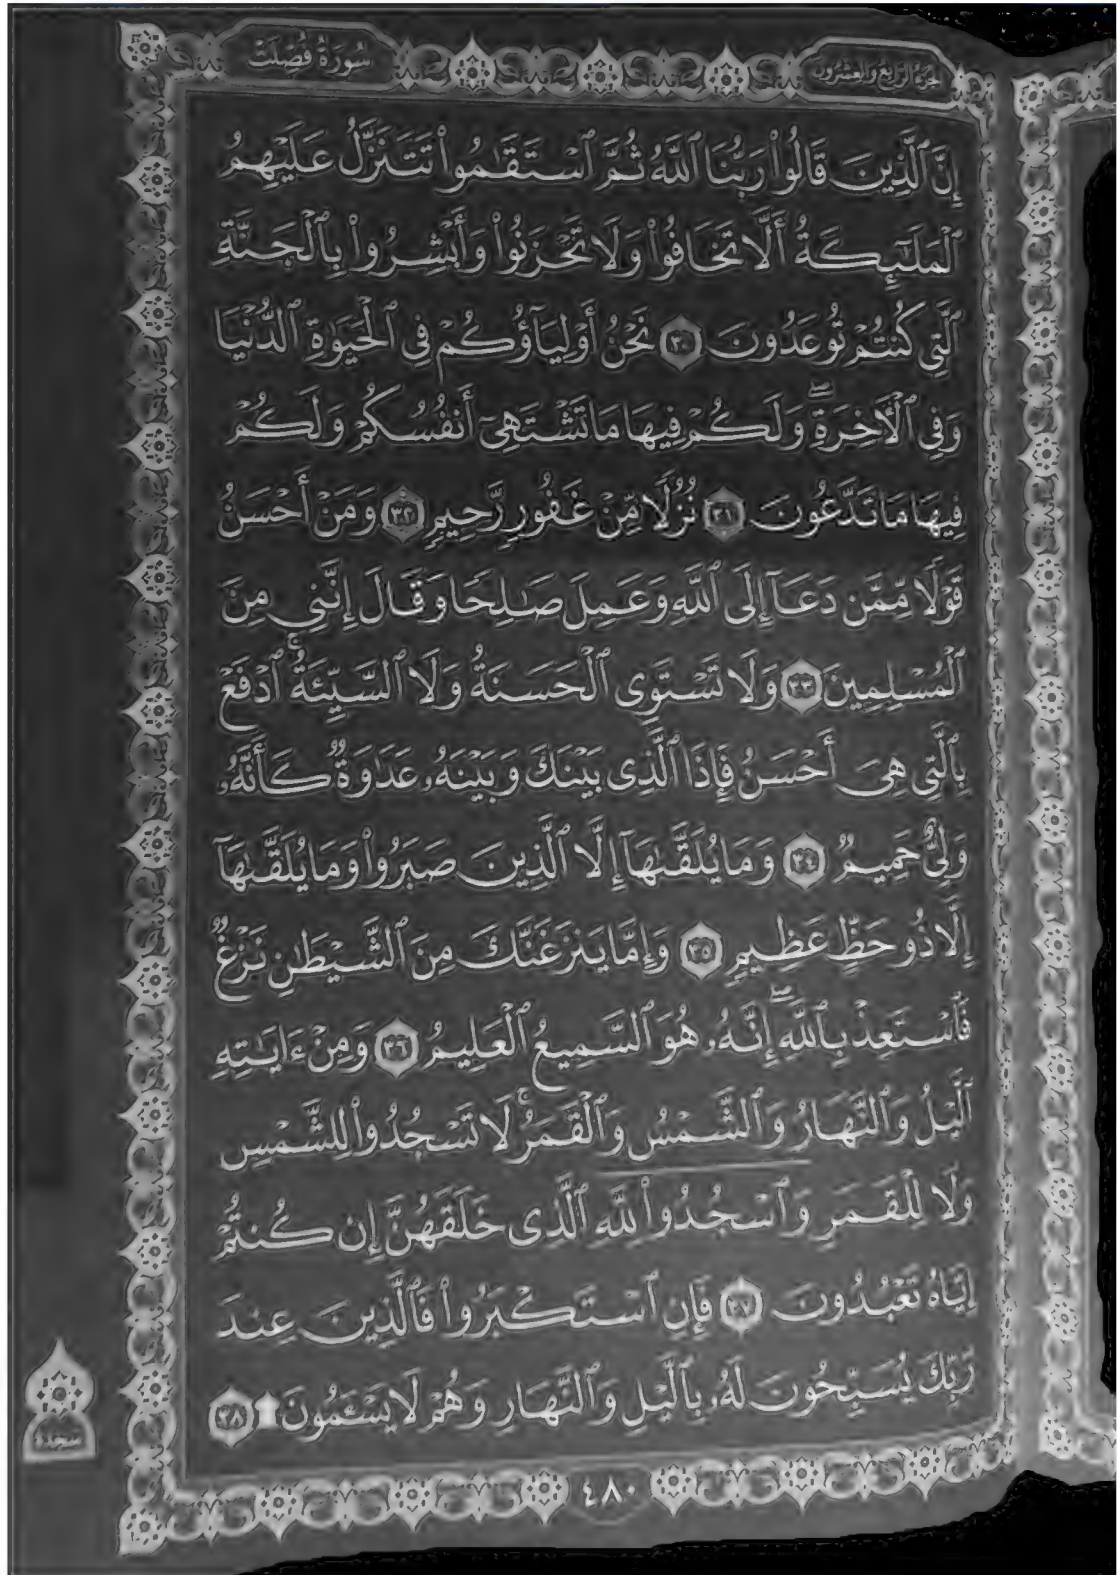 الجزء الرابع والعشرون
سورة فصلت
إِنَّ ٱلَّذِينَ قَالُوا۟ رَبُّنَا ٱللَّهُ ثُمَّ ٱسْتَقَـٰمُوا۟ تَتَنَزَّلُ عَلَيْهِمُ
ٱلْمَلَـٰٓئِكَةُ أَلَّا تَخَافُوا۟ وَلَا تَحْزَنُوا۟ وَأَبْشِرُوا۟ بِٱلْجَنَّةِ
ٱلَّتِى كُنتُمْ تُوعَدُونَ ٣٠ نَحْنُ أَوْلِيَآؤُكُمْ فِى ٱلْحَيَوٰةِ ٱلدُّنْيَا
وَفِى ٱلْـَٔاخِرَةِ ۖ وَلَكُمْ فِيهَا مَا تَشْتَهِىٓ أَنفُسُكُمْ وَلَكُمْ
فِيهَا مَا تَدَّعُونَ ٣١ نُزُلًا مِّنْ غَفُورٍ رَّحِيمٍ ٣٢ وَمَنْ أَحْسَنُ
قَوْلًا مِّمَّن دَعَآ إِلَى ٱللَّهِ وَعَمِلَ صَـٰلِحًا وَقَالَ إِنَّنِى مِنَ
ٱلْمُسْلِمِينَ ٣٣ وَلَا تَسْتَوِى ٱلْحَسَنَةُ وَلَا ٱلسَّيِّئَةُ ۚ ٱدْفَعْ
بِٱلَّتِى هِىَ أَحْسَنُ فَإِذَا ٱلَّذِى بَيْنَكَ وَبَيْنَهُۥ عَدَٰوَةٌ كَأَنَّهُۥ
وَلِىٌّ حَمِيمٌ ٣٤ وَمَا يُلَقَّىٰهَآ إِلَّا ٱلَّذِينَ صَبَرُوا۟ وَمَا يُلَقَّىٰهَآ
إِلَّا ذُو حَظٍّ عَظِيمٍ ٣٥ وَإِمَّا يَنزَغَنَّكَ مِنَ ٱلشَّيْطَـٰنِ نَزْغٌ
فَٱسْتَعِذْ بِٱللَّهِ ۖ إِنَّهُۥ هُوَ ٱلسَّمِيعُ ٱلْعَلِيمُ ٣٦ وَمِنْ ءَايَـٰتِهِ
ٱلَّيْلُ وَٱلنَّهَارُ وَٱلشَّمْسُ وَٱلْقَمَرُ ۚ لَا تَسْجُدُوا۟ لِلشَّمْسِ
وَلَا لِلْقَمَرِ وَٱسْجُدُوا۟ لِلَّهِ ٱلَّذِى خَلَقَهُنَّ إِن كُنتُمْ
إِيَّاهُ تَعْبُدُونَ ٣٧ فَإِنِ ٱسْتَكْبَرُوا۟ فَٱلَّذِينَ عِندَ
رَبِّكَ يُسَبِّحُونَ لَهُۥ بِٱلَّيْلِ وَٱلنَّهَارِ وَهُمْ لَا يَسْـَٔمُونَ ٣٨
سجدة
٤٨٠